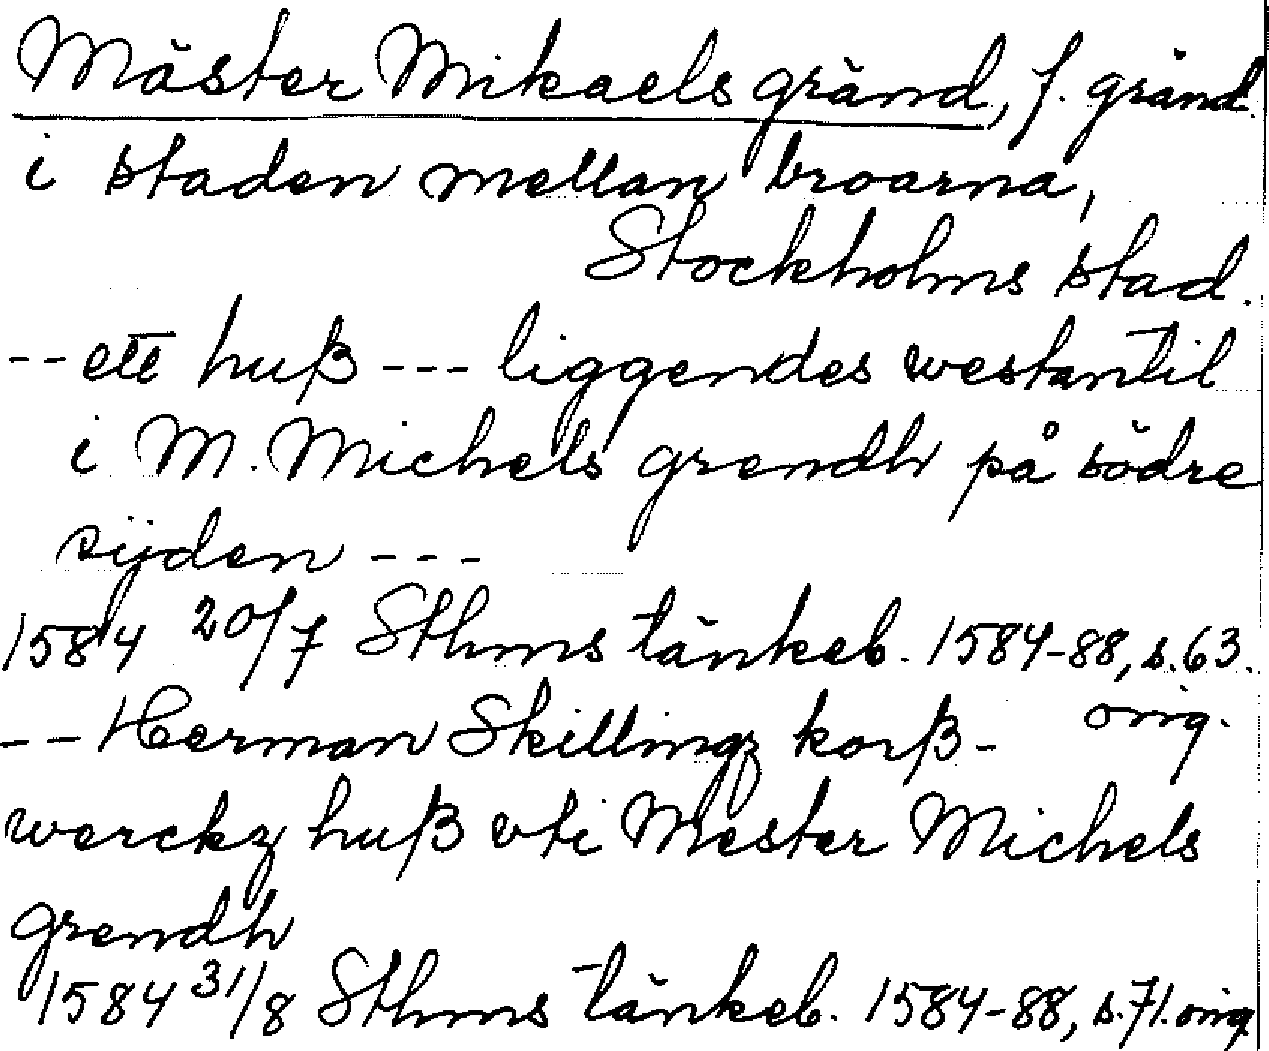 Mäster Mikaels gränd, f. gränd
i staden mellan broarna,
Stockholms stad.
-- ett huß --- liggendes westantil
i M. Michels grendh på södre
sijden ---
1584 20/7 Sthms tänkeb. 1584-88, s. 63.
orig.
-- Herman Skillingz korß-
werckz huß vti Mester Michels
grendh
1584 31/8 Sthms tänkeb. 1584-88, s. 71. orig